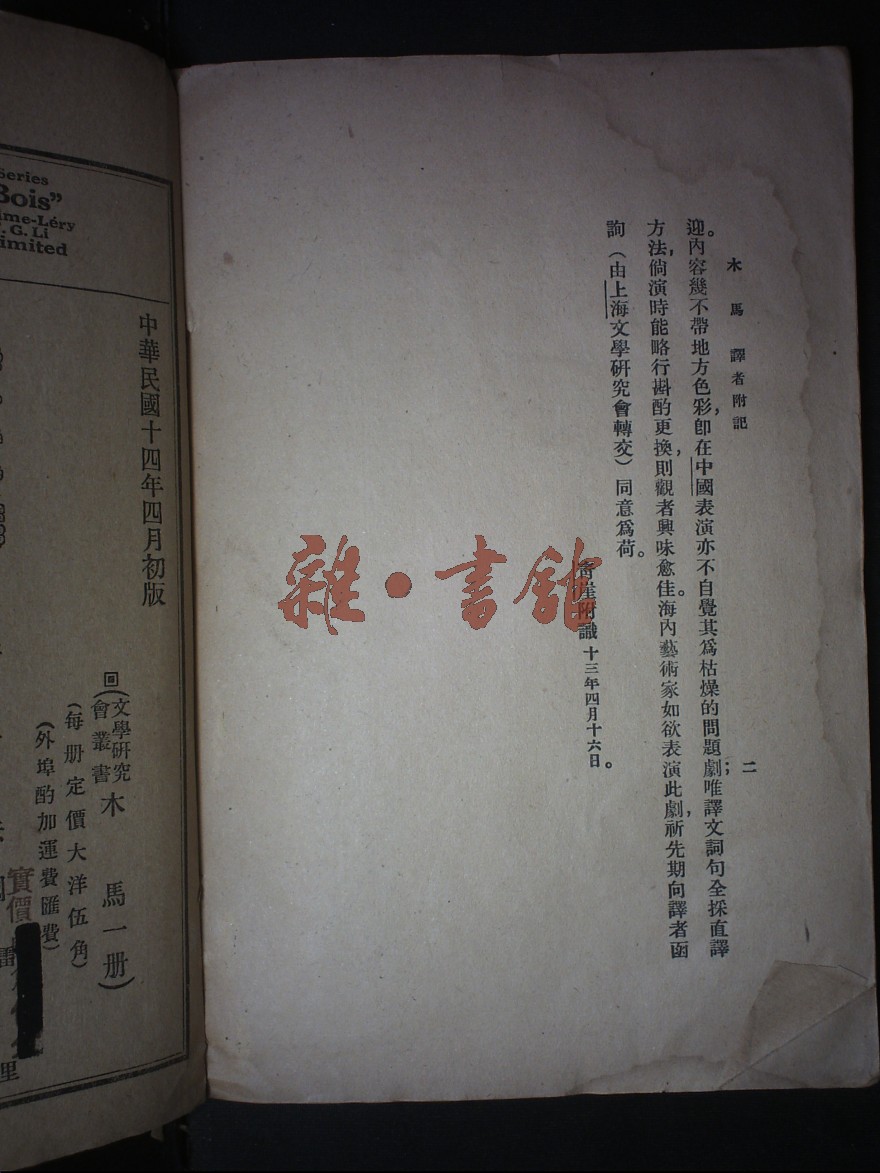 木馬 譯者附記
二
迎。內容幾不帶地方色彩，卽在中國表演亦不自覺其爲枯燥的問題劇；唯譯文詞句全採直譯
方法，倘演時能略行斟酌更換，則觀者興味愈佳。海內藝術家如欲表演此劇，祈先期向譯者函
詢（由上海文學研究會轉交）同意爲荷。
崖附識 十三年四月十六日。
雜·書館
Series
Bois”
me-Léry
G. Li
imited
中華民國十四年四月初版
回(文學研究會叢書木馬一册)
(每册定價大洋伍角)
(外埠酌加運費匯費)
實價